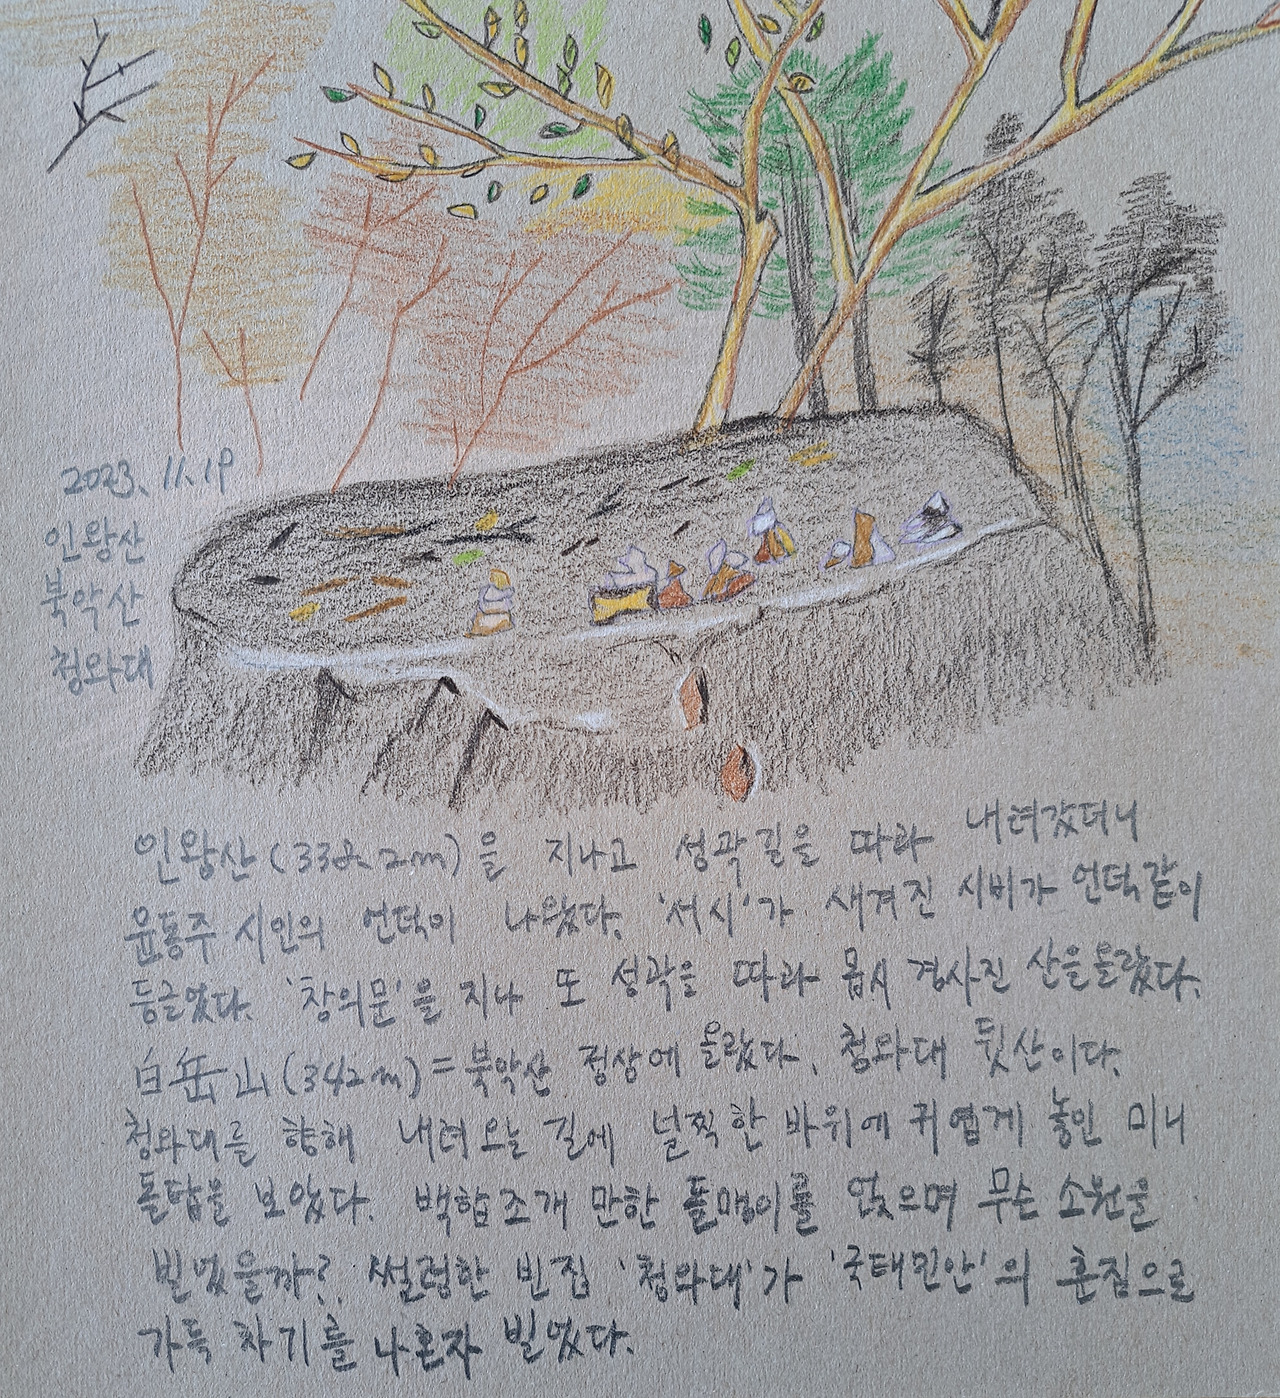 2023. 11. 19
인왕산
북악산
청와대
인왕산(338.2m)을 지나고 성곽길을 따라 내려갔더니
윤동주 시인의 언덕이 나왔다. '서시'가 새겨진 시비가 언덕같이
둥글었다. '창의문'을 지나 또 성곽을 따라 몹시 경사진 산을올랐다.
白岳山(342m)=북악산 정상에 올랐다. 청와대 뒷산이다.
청와대를 향해 내려오는 길에 널찍한 바위에 귀엽게 놓인 미니
돌탑을 보았다. 백합조개 만한 돌맹이를 얹으며 무슨 소원을
빌었을까? 썰렁한 빈집 '청와대'가 '국태민안'의 혼집으로
가득 차기를 나혼자 빌었다.